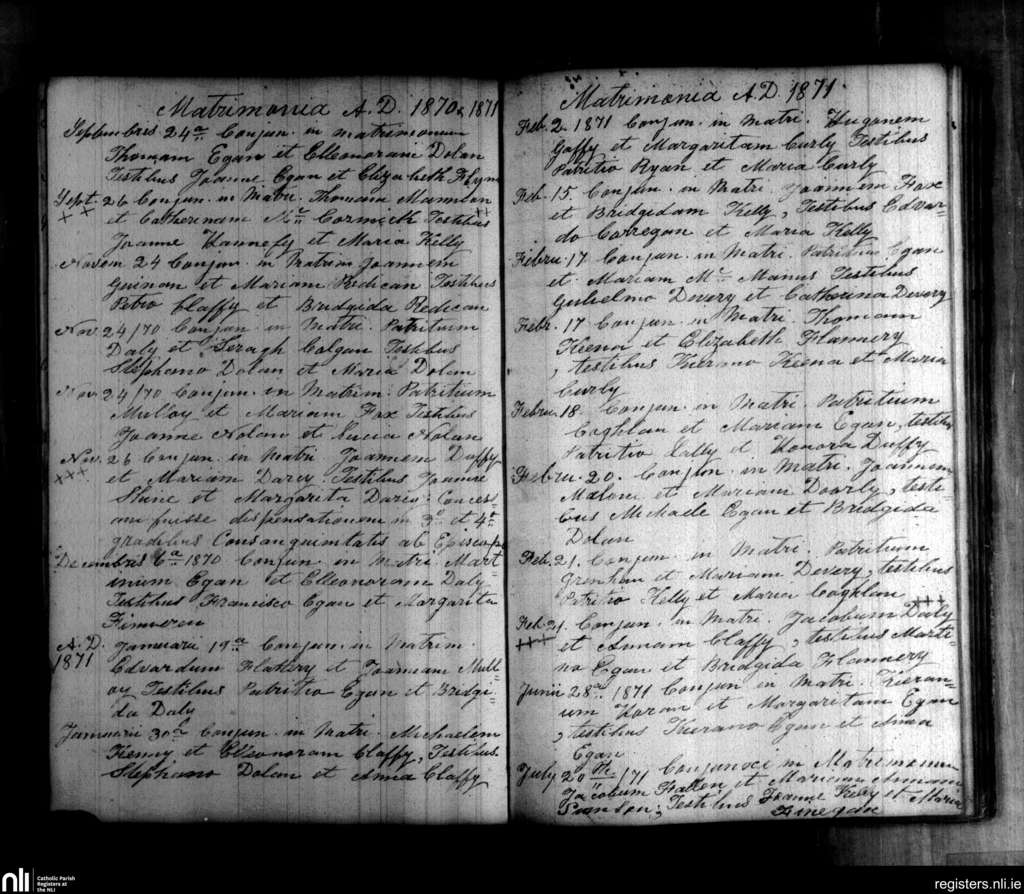 Matrimonia A.D. 1870 & 1871
Septembris 24a Conjun. in matrimonium
Thomam Egan et Elleonoram Dolan
Testibus Joanne Egan et Elizabeth Flynn
Sept. 26 Conjun. in Matri. Thomam
et Catherinam Mc Cormick Testibus
Joanne Hannefy et Maria Kelly
Novem 24 Conjun. in Matrim Joannem
Guinan et Mariam Redican Testibus
Petro Claffy et Bridgida Redican
Nov. 24/70 Conjun. in Matri. Patritium
Daly et Seragh Colgan Testibus
Stephano Dolan et Maria Dolan
Nov. 24/70 Conjun. in Matrim. Patritium
Mulloy et Mariam Fox Testibus
Joanne Nolan et Lucia Nolan
Nov. 26 Conjun. in Matri Joannem Duffy
et Mariam Darcy Testibus Joanne
et Margarita Darcy. Conces-
dispensationem in 3o et 4o
gradibus Consanguinitatis ab Episcopo
Decembris 6a 1870 Conjun. in Matri Mart-
inum Egan et Elleonoram Daly
Testibus Francisco Egan et Margarita
Finneran
A.D. Januarii 19a Conjun. in Matrim.
1871 Edvardum Flattery et Joannam Mull-
oy Testibus Patritio Egan et Bridgi-
da Daly
Januarii 30a Conjun. in Matri. Michaelem
Kenny et Elleonoram Claffy, Testibus
Stephano Dolan et Anna Claffy
Matrimonia A.D. 1871.
Feb. 2. 1871 Conjun. in Matri. Hugonem
Gaffy et Margaritam Curly Testibus
Patritio Ryan et Maria Curly
Feb. 15 Conjun. in Matri. Joannem Fox
et Bridgidam Kelly, Testibus Edvar-
do Corregan et Maria Kelly
Februr. 17 Conjun. in Matri. Patritium Egan
et Mariam Mc Manus Testibus
Gulielmo Devery et Catherina Devery
Febr. 17 Conjun. in Matri. Thomam
Keena et Elizabeth Flannery
, testibus Kierano Keena et Maria
Curly
Februr. 18 Conjun. in Matri. Patritium
Coghlan et Mariam Egan, testibus
Patritio Lally et Honora Duffy
Februr. 20. Conjun. in Matri. Joannem
Malone et Mariam Doorly, testi-
bus Michaele Egan et Bridgida
Dolan
Feb. 21. Conjun. in Matri. Patritium
Grenhan et Mariam Devery, testibus
Patritio Kelly et Maria Coghlan
Feb. 21. Conjun. in Matri. Jacobum Daly
et Annam Claffy, testibus Marti-
no Egan et Bridgida Flannery
Junii 28a 1871 Conjun in Matri. Kieran-
um Horan et Margaritam Egan
, testibus Kierano Egan et Anna
Egan
July 20th /71 in Matrimonium
Jacobum Fallen et Mariam
Testibus Joanne et Maria
Finegan
nli
Catholic Parish
Registers at
the NLI
registers.nli.ie